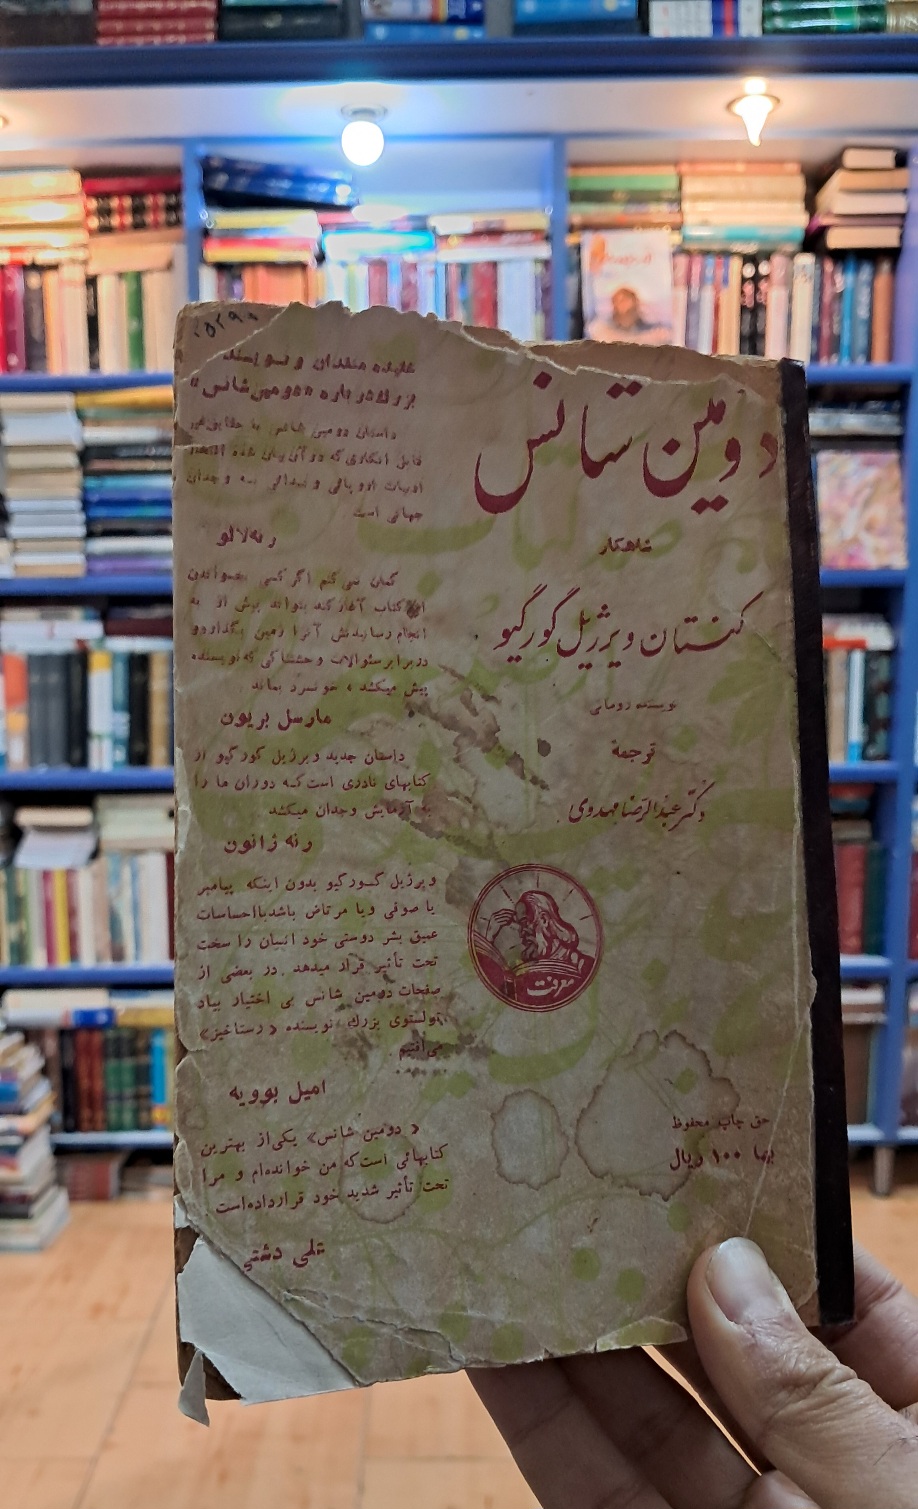 دومین شانس
شاهکار
کنستان ویرژیل گورگیو
نویسنده رومانی
ترجمة
دکتر عبدالرضا مهدوی
معرفت
حق چاپ محفوظ
بها ۱۰۰ ریال
عقیده منقدان و نویسند
بزرگ درباره «دومین شانس»
داستان دومین شانس با حقایق غیر
قابل انکاری که در آن بیان شده افتخار
ادبیات اروپائی و ندائی به وجدان
جهانی است
رنه لالو
گمان نمی کنم اگر کسی بخواندن
این کتاب آغاز کند بتواند پیش از به
انجام رسانیدنش آنرا زمین بگذارد و
در برابر سئوالات وحشتناکی که نویسنده
پیش میکشد، خونسرد بماند
مارسل بریون
داستان جدید ویرژیل گورگیو از
کتابهای نادری است که دوران ما را
به آزمایش وجدان میکشد
رنه ژانون
ویرژیل گورگیو بدون اینکه پیامبر
یا صوفی ویا مرتاض باشد با احساسات
عمیق بشر دوستی خود انسان را سخت
تحت تأثیر قرار میدهد. در بعضی از
صفحات دومین شانس بی اختیار بیاد
تولستوی بزرگ، نویسنده «رستاخیز»
می افتیم.
امیل بوویه
«دومین شانس» یکی از بهترین
کتابهائی است که من خوانده ام و مرا
تحت تأثیر شدید خود قرار داده است
علی دشتی